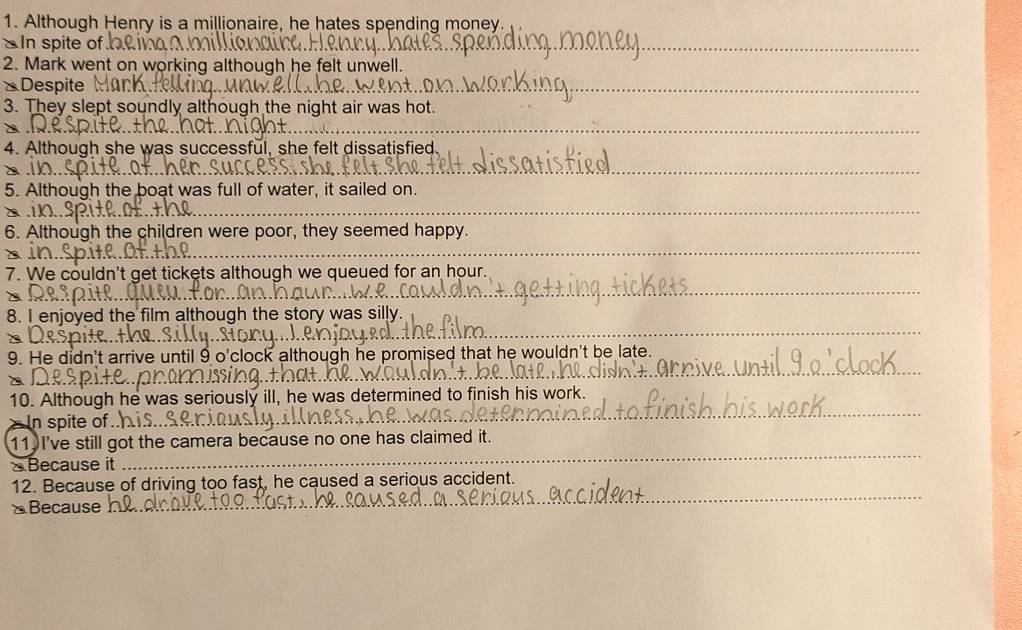 1. Although Henry is a millionaire, he hates spending money.
In spite of being a millionaire, Henry hates spending money
2. Mark went on working although he felt unwell.
Despite Mark felling unwell, he went on working
3. They slept soundly although the night air was hot.
Despite the hot night
4. Although she was successful, she felt dissatisfied.
in spite of her success, she felt she felt dissatisfied
5. Although the boat was full of water, it sailed on.
in spite of the
6. Although the children were poor, they seemed happy.
in spite of the
7. We couldn't get tickets although we queued for an hour.
Despite queu for an hour, we couldn't getting tickets
8. I enjoyed the film although the story was silly.
Despite the silly story, I enjoyed the film
9. He didn't arrive until 9 o'clock although he promised that he wouldn't be late.
Despite promissing that he wouldn't be late, he didn't arrive until 9 o'clock
10. Although he was seriously ill, he was determined to finish his work.
In spite of his seriously illness, he was determined to finish his work
11. I've still got the camera because no one has claimed it.
Because it
12. Because of driving too fast, he caused a serious accident.
Because he drove too fast, he caused a serious accident